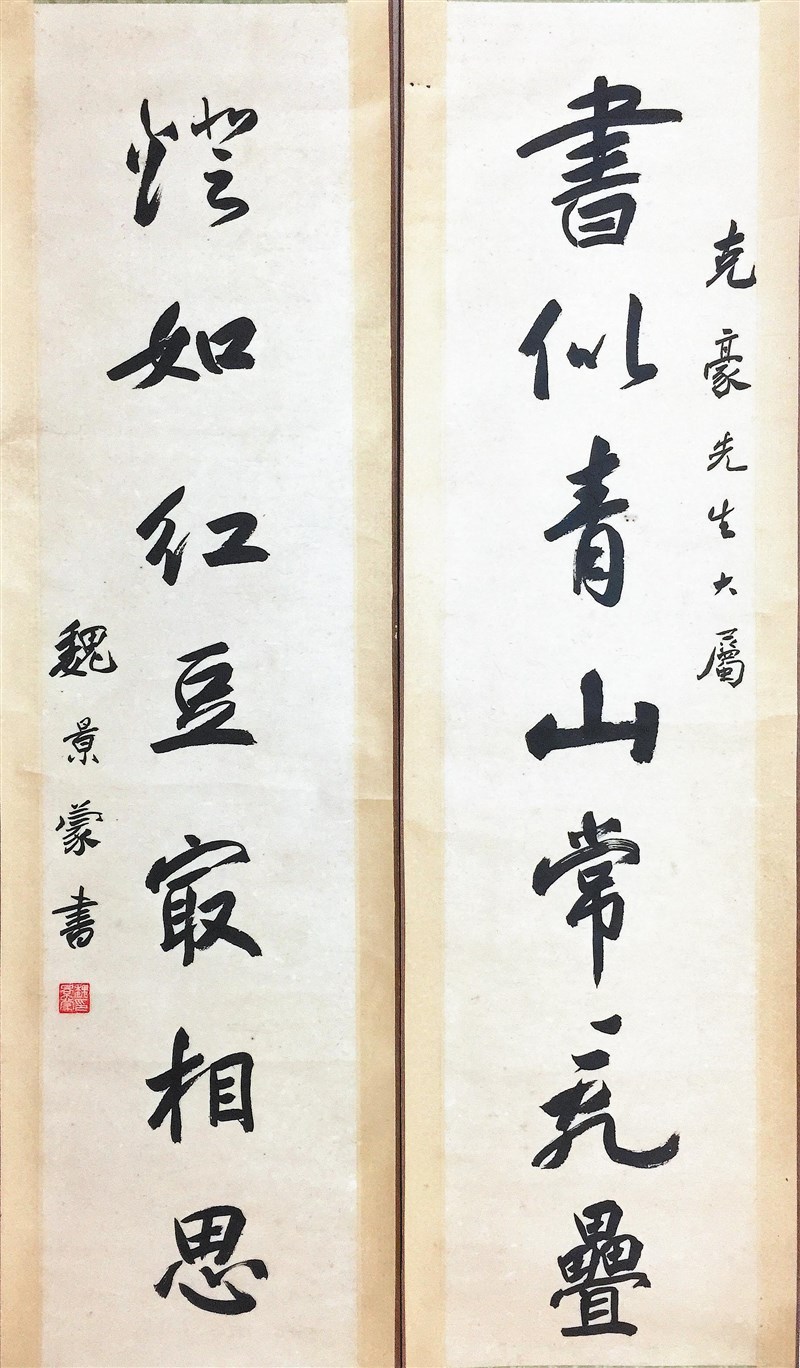 克豪先生大屬
書似青山常亂疊
燈如紅豆寂相思
魏景蒙書